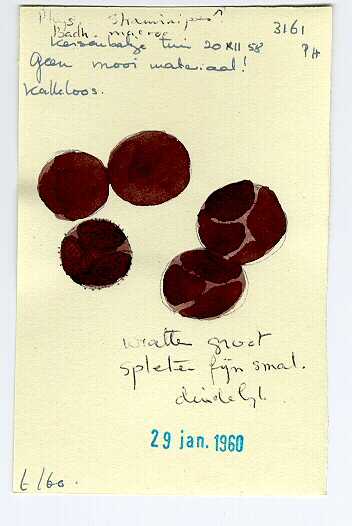 Phys. straminipes
Badh. macroc 3161
Kersenbaatje tuin 20 XII 58 PH
Geen mooi materiaal!
Kalkloos.
wratten groot
spleten fijn smal.
duidelijk.
29 jan. 1960
t/60.